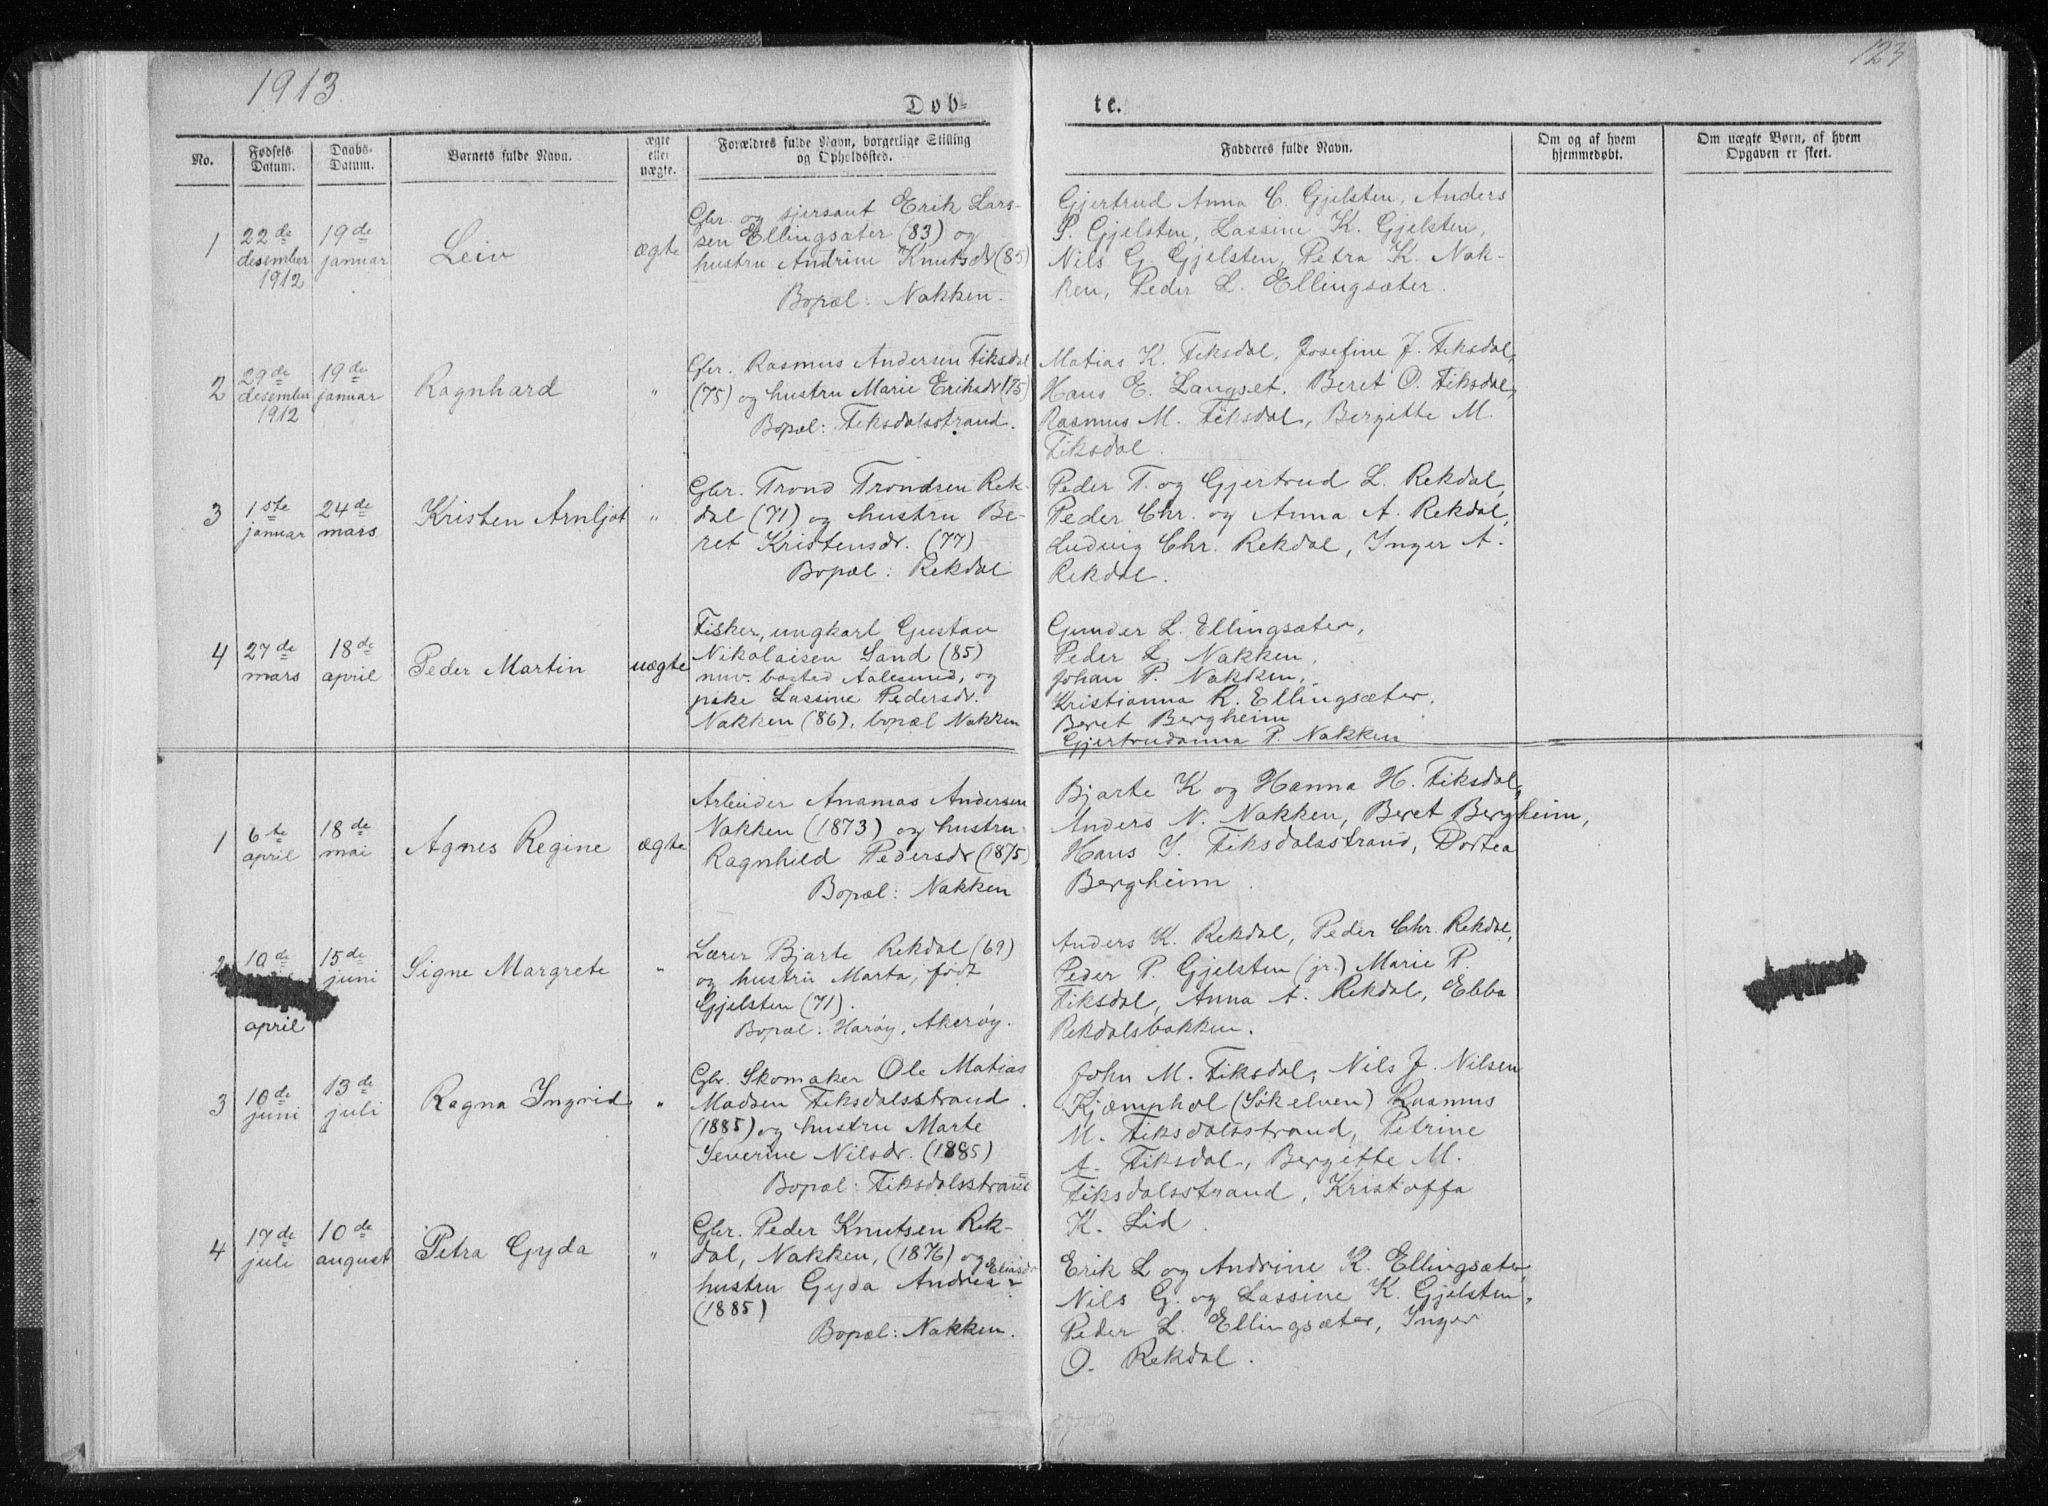 1913.
123
Døb-
te.
No.
Fødsels
Datum.
Daabs-
Datum.
Barnets fulde Navn.
ægte
eller
uægte.
Forældres fulde Navn, borgerlige Stilling
og Opholdssted.
Fadderes fulde Navn.
Om og af hvem
hjemmedøbt.
Om uægte Børn, af hvem
Opgaven er skeet.
1
22de
desember
1912
19de
januar
Leiv
ægte
Gbr. og sjersant Erik Lars-
sen Ellingsæter (83) og
hustru Andrine Knutsdr (85)
Bopæl: Nakken.
Gjertrud Anna C. Gjelsten, Anders
P. Gjelsten, Lassine K. Gjelsten,
Nils G. Gjelsten, Petra K. Nak-
ken, Peder L. Ellingsæter.
2
29de
desember
1912
19de
januar
Ragnhard
"
Gbr. Rasmus Andersen Fiksdal
(75) og hustru Marie Eriksdr (75)
Bopæl: Fiksdalsstrand.
Matias K. Fiksdal, Josefine J. Fiksdal,
Hans E. Langset, Beret O. Fiksdal,
Rasmus M. Fiksdal, Bergitte M.
Fiksdal.
3
1ste
januar
24de
mars
Kristen Arnljot
"
Gbr. Trond Trondsen Rek-
dal (71) og hustru Be-
ret Kristensdr. (77)
Bopæl: Rekdal
Peder T. og Gjertrud L. Rekdal,
Peder Chr. og Anna A. Rekdal,
Ludvig Chr. Rekdal, Inger A.
Rekdal.
4
27de
mars
18de
april
Peder Martin
uægte
Fisker, ungkarl Gustav
Nikolaisen Sand (85)
nuv. bosted Aalesund, og
pike Lassine Pedersdr.
Nakken (86), bopæl Nakken
Gunder L. Ellingsæter,
Peder L. Nakken,
Johan P. Nakken,
Kristianna R. Ellingsæter,
Beret Bergheim
Gjertrudanna P. Nakken
1
6te
april
18de
mai
Agnes Regine
ægte
Arbeider Ananias Andersen
Nakken (1873) og hustru
Ragnhild Pedersdr (1875)
Bopæl: Nakken
Bjarte K og Hanna H. Fiksdal,
Anders N. Nakken, Beret Bergheim,
Hans I. Fiksdalsstrand, Dortea
Bergheim.
2
10de
april
15de
juni
Signe Margrete
"
Lærer Bjarte Rekdal (69)
og hustru Marta, født
Gjelsten (71).
Bopæl: Harøy, Akerøy.
Anders K. Rekdal, Peder Chr. Rekdal,
Peder P. Gjelsten (jr.) Marie P.
Fiksdal, Anna A. Rekdal, Ebba
Rekdalsbakken.
3
10de
juni
13de
juli
Ragna Ingrid
"
Gbr. Skomaker Ole Matias
Madsen Fiksdalsstrand
(1885) og hustru Marte
Severine Nilsdr. (1885)
Bopæl: Fiksdalsstrand
John M. Fiksdal, Nils J. Nilsen
Kjæmphol (Søkelven) Rasmus
M. Fiksdalsstrand, Petrine
A. Fiksdal, Bergitte M.
Fiksdalsstrand, Kristoffa
K. Lid.
4
17de
juli
10de
august
Petra Gyda
"
Gbr. Peder Knutsen Rek-
dal, Nakken, (1876) og
hustru Gyda Andrea Eliasdr
(1885)
Bopæl: Nakken.
Erik L og Andrine K. Ellingsæter,
Nils G. og Lassine K. Gjelsten,
Peder L. Ellingsæter, Inger
O. Rekdal.